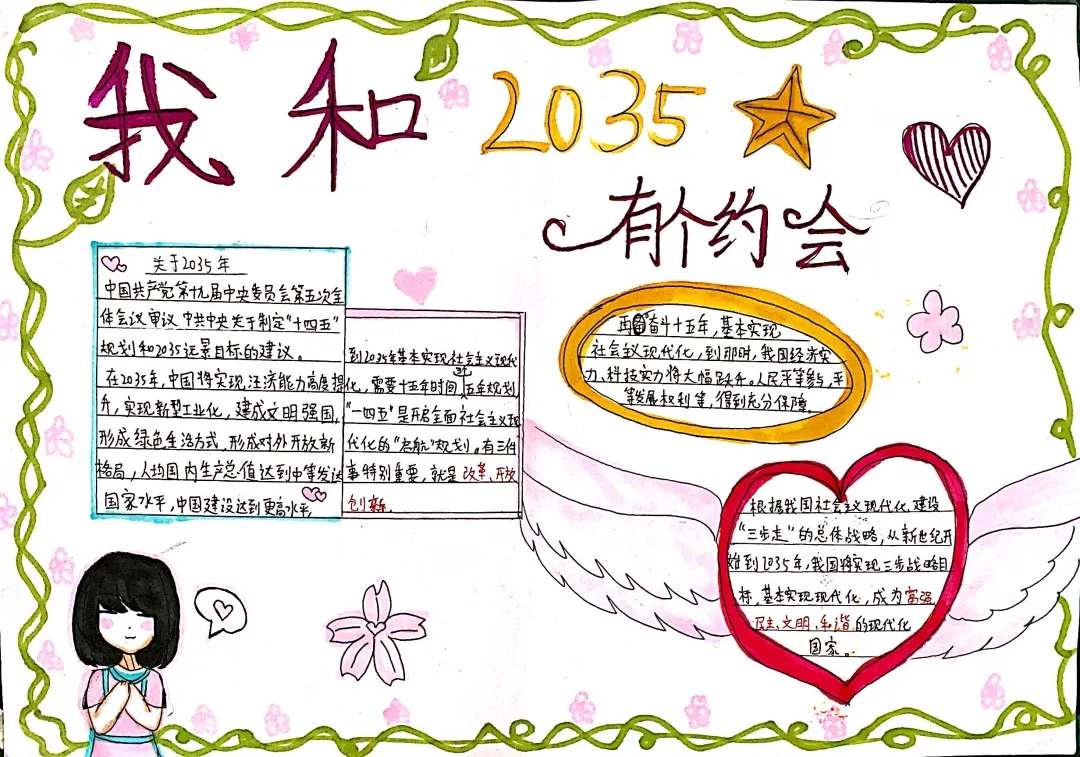 我和2035
有个约会
关于2035年
中国共产党第十九届中央委员会第五次全
体会议审议中共中央关于制定“十四五”
规划和2035远景目标的建议。
在2035年,中国将实现经济能力高度提
升,实现新型工业化,建成文明强国,
形成绿色生活方式,形成对外开放新
格局,人均国内生产总值达到中等发达
国家水平,中国建设达到更高水平
到2035年基本实现社会主义现代
化,需要十五年时间,五年规划
“一四五”是开启全面社会主义现
代化的“启航”规划。有三件
事特别重要,就是改革、开放
创新.
再奋斗十五年,基本实现
社会主义现代化,到那时,我国经济实
力、科技实力将大幅跃升。人民平等参与,平
等发展权利等,得到充分保障.
根据我国社会主义现代化建设
“三步走”的总体战略,从新世纪开
始到2035年,我国将实现三步战略目
标,基本实现现代化,成为富强
民主、文明、和谐的现代化
国家。